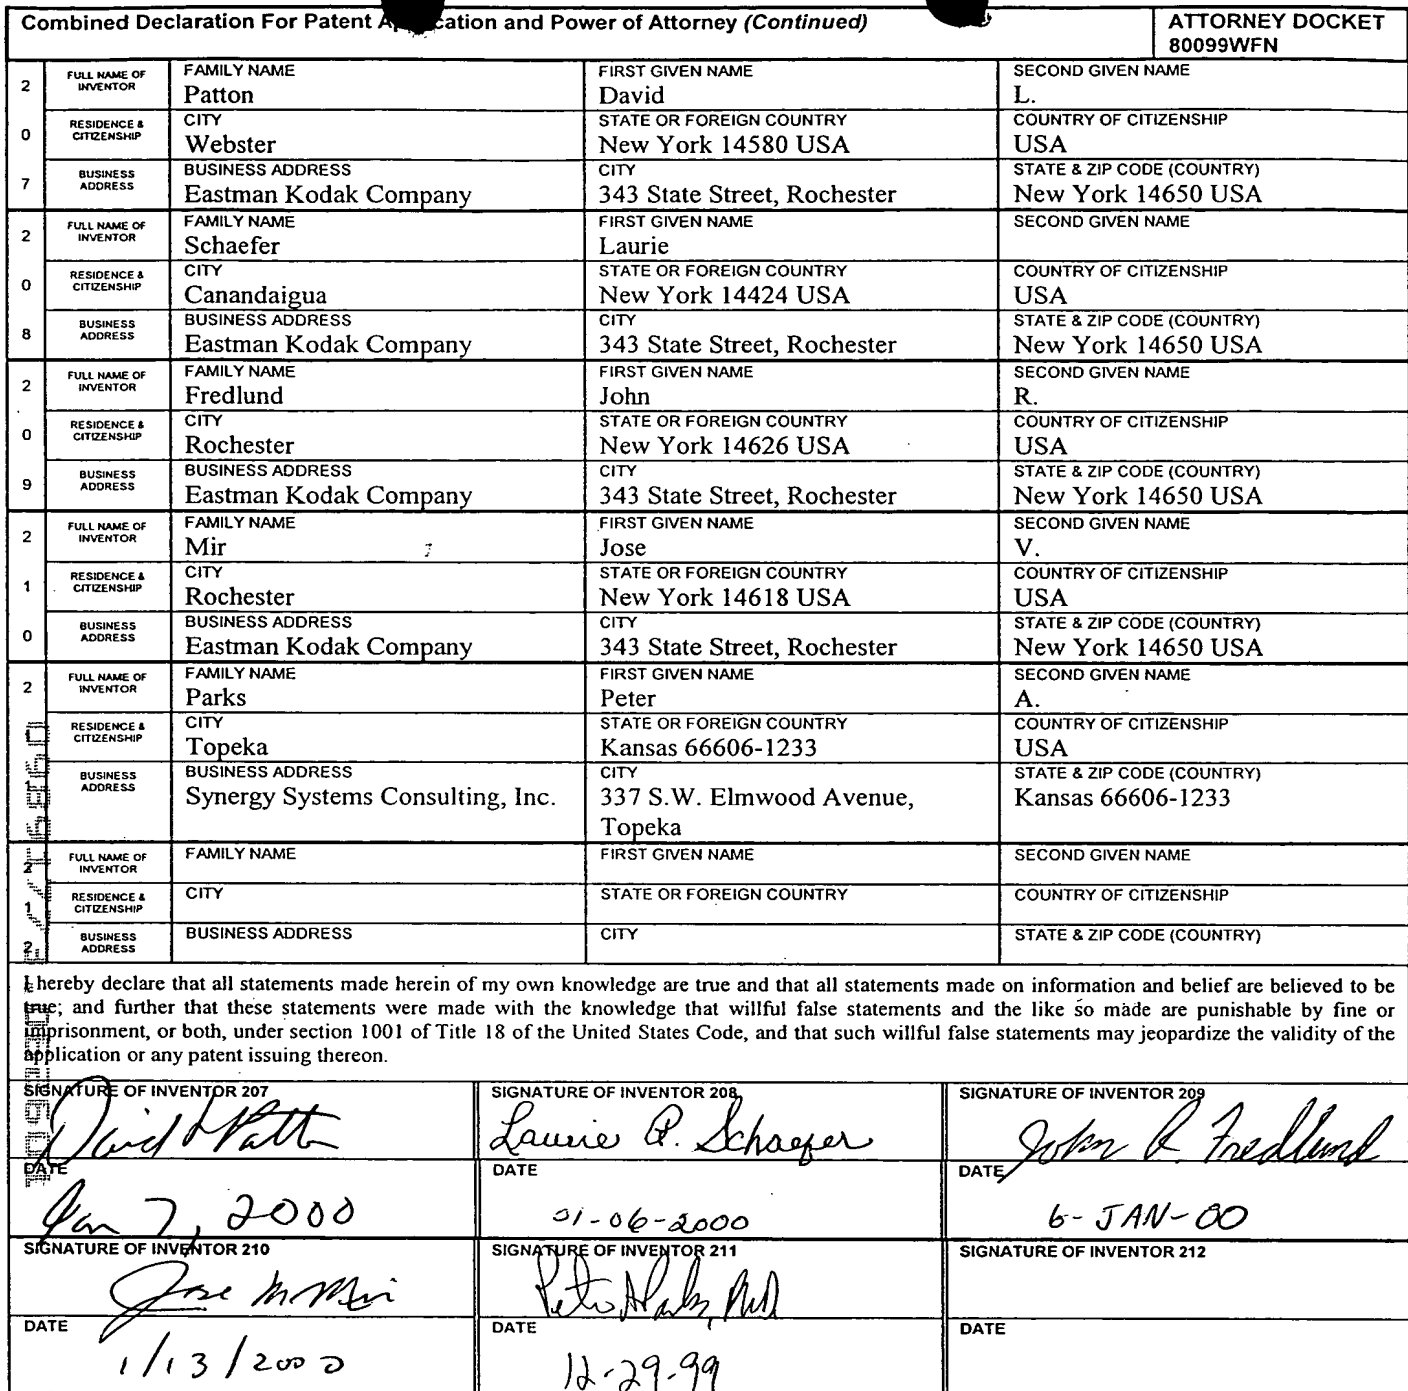 Combined Declaration For Patent Application and Power of Attorney (Continued)
ATTORNEY DOCKET
80099WFN
2 0 7
FULL NAME OF INVENTOR
FAMILY NAME
Patton
FIRST GIVEN NAME
David
SECOND GIVEN NAME
L.
RESIDENCE & CITIZENSHIP
CITY
Webster
STATE OR FOREIGN COUNTRY
New York 14580 USA
COUNTRY OF CITIZENSHIP
USA
BUSINESS ADDRESS
BUSINESS ADDRESS
Eastman Kodak Company
CITY
343 State Street, Rochester
STATE & ZIP CODE (COUNTRY)
New York 14650 USA
2 0 8
FULL NAME OF INVENTOR
FAMILY NAME
Schaefer
FIRST GIVEN NAME
Laurie
SECOND GIVEN NAME
RESIDENCE & CITIZENSHIP
CITY
Canandaigua
STATE OR FOREIGN COUNTRY
New York 14424 USA
COUNTRY OF CITIZENSHIP
USA
BUSINESS ADDRESS
BUSINESS ADDRESS
Eastman Kodak Company
CITY
343 State Street, Rochester
STATE & ZIP CODE (COUNTRY)
New York 14650 USA
2 0 9
FULL NAME OF INVENTOR
FAMILY NAME
Fredlund
FIRST GIVEN NAME
John
SECOND GIVEN NAME
R.
RESIDENCE & CITIZENSHIP
CITY
Rochester
STATE OR FOREIGN COUNTRY
New York 14626 USA
COUNTRY OF CITIZENSHIP
USA
BUSINESS ADDRESS
BUSINESS ADDRESS
Eastman Kodak Company
CITY
343 State Street, Rochester
STATE & ZIP CODE (COUNTRY)
New York 14650 USA
2 1 0
FULL NAME OF INVENTOR
FAMILY NAME
Mir
FIRST GIVEN NAME
Jose
SECOND GIVEN NAME
V.
RESIDENCE & CITIZENSHIP
CITY
Rochester
STATE OR FOREIGN COUNTRY
New York 14618 USA
COUNTRY OF CITIZENSHIP
USA
BUSINESS ADDRESS
BUSINESS ADDRESS
Eastman Kodak Company
CITY
343 State Street, Rochester
STATE & ZIP CODE (COUNTRY)
New York 14650 USA
2
FULL NAME OF INVENTOR
FAMILY NAME
Parks
FIRST GIVEN NAME
Peter
SECOND GIVEN NAME
A.
RESIDENCE & CITIZENSHIP
CITY
Topeka
STATE OR FOREIGN COUNTRY
Kansas 66606-1233
COUNTRY OF CITIZENSHIP
USA
BUSINESS ADDRESS
BUSINESS ADDRESS
Synergy Systems Consulting, Inc.
CITY
337 S.W. Elmwood Avenue,
Topeka
STATE & ZIP CODE (COUNTRY)
Kansas 66606-1233
2 1 2
FULL NAME OF INVENTOR
FAMILY NAME
FIRST GIVEN NAME
SECOND GIVEN NAME
RESIDENCE & CITIZENSHIP
CITY
STATE OR FOREIGN COUNTRY
COUNTRY OF CITIZENSHIP
BUSINESS ADDRESS
BUSINESS ADDRESS
CITY
STATE & ZIP CODE (COUNTRY)
I hereby declare that all statements made herein of my own knowledge are true and that all statements made on information and belief are believed to be
true; and further that these statements were made with the knowledge that willful false statements and the like so made are punishable by fine or
imprisonment, or both, under section 1001 of Title 18 of the United States Code, and that such willful false statements may jeopardize the validity of the
application or any patent issuing thereon.
SIGNATURE OF INVENTOR 207
David L Patton
SIGNATURE OF INVENTOR 208
Laurie A. Schaefer
SIGNATURE OF INVENTOR 209
John R. Fredlund
DATE
Jan 7, 2000
DATE
01-06-2000
DATE
6-JAN-00
SIGNATURE OF INVENTOR 210
Jose M Mir
SIGNATURE OF INVENTOR 211
Peter A Parks, PhD
SIGNATURE OF INVENTOR 212
DATE
1/13/2000
DATE
12-29-99
DATE